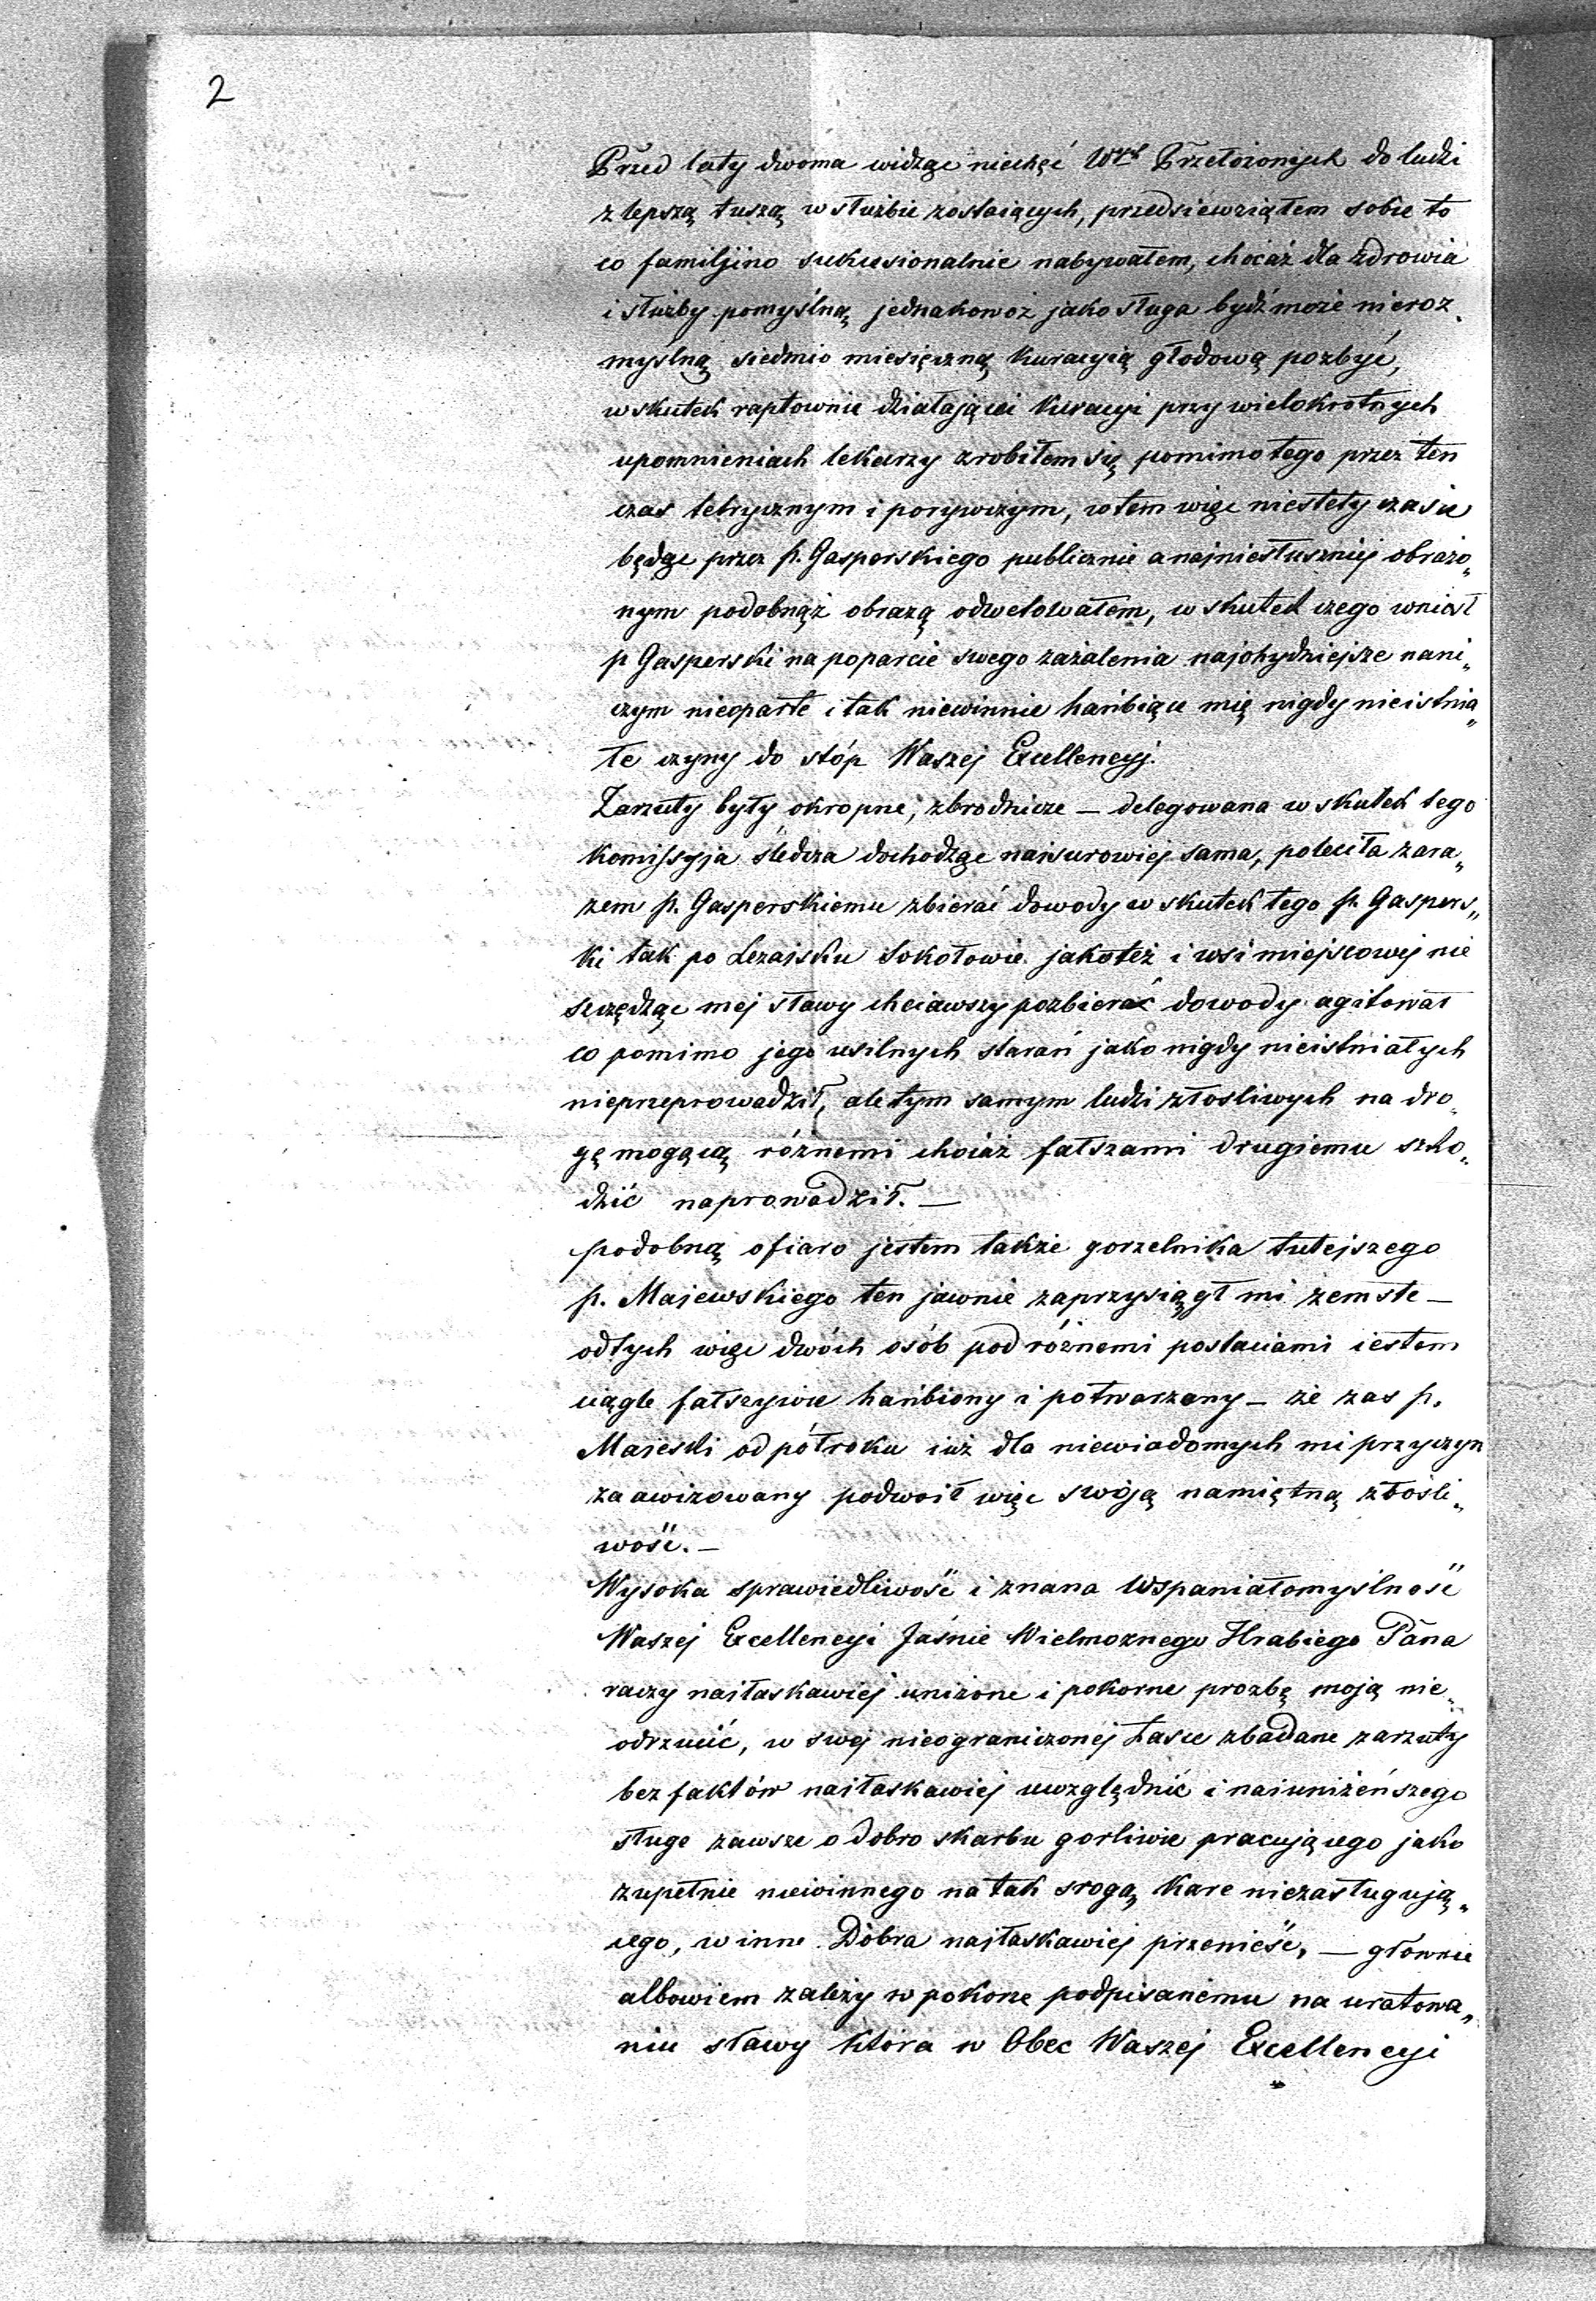 2
Przed laty dwoma widząc niechęć Wych Przełożonych do ludzi
z lepszą tuszą w służbie zostaiących, przedsiewziąłem sobie to
co familijino sukcesionalnie nabywałem, chociaż dla zdrowia
i służby pomyślną jednakowoż jako sługa bydź może nieroz„
myślną siedmio miesięczną kuracyią głodową pozbyć,
w skutek raptownie działającei kuracyi przy wielokrotnych
upomnieniach lekarzy zrobiłem się pomimo tego przez ten
czas tetrycznym i porywczym, w tem więc niestety czasie
będąc przez p. Gasperskiego publicznie a najniesłuszniej obrażo„
nym podobnąż obrazą odwetowałem, w skutek czego wniósł
p Gasperski na poparcie swego zażalenia najohydniejsze nani„
czym nieoparte i tak niewinnie hańbiące mię nigdy nieistnia„
łe czyny do stóp Waszej Excellencyj.
Zarzuty były okropne, zbrodnicze — delegowana w skutek tego
Komissyja śledcza dochodząc naisurowiej sama, poleciła zara„
zem p. Gasperskiemu zbierać dowody w skutek tego p. Gaspers„
ki tak po Leżaisku Sokołowie jakoteż i wsi miejscowej nie
szczędząc mej sławy chciawszy pozbierać dowody agitował
co pomimo jego usilnych starań jako nigdy nieistniałych
nieprzeprowadził, ale tym samym ludzi złosliwych na dro„
gę mogącą różnemi chociaż fałszami drugiemu szko„
dzić naprowadził. —
podobną ofiaro jestem także gorzelnika tutejszego
p. Majewskiego ten jawnie zaprzysiągł mi zemste —
odtych więc dwóch osób pod róznemi postaciami iestem
ciągle fałszywie hańbiony i potwarzany — że zas p.
Majeski od półroku iuż dla niewiadomych mi przyczyn
zaawizowany podwoił więc swoją namiętną złośli„
wość. —
Wysoka sprawiedliwość i znana Wspaniałomyślność
Waszej Excellencyi Jaśnie Wielmoznego Hrabiego Pana
raczy naiłaskawiej uniżone i pokorne prozbę moją nie„
odrzucić, w swej nieograniczonej Łasce zbadane zarzuty
bez faktów naiłaskawiej uwzględnić i naiuniżeńszego
sługe zawsze o dobro skarbu gorliwie pracującego jako
zupełnie niewinnego na tak srogą Kare niezasługują„
cego, w inne Dobra najłaskawiej przenieść, — głównie
albowiem zależy w pokorze podpisanemu na uratowa„
niu sławy która w Obec Waszej Excellencyi